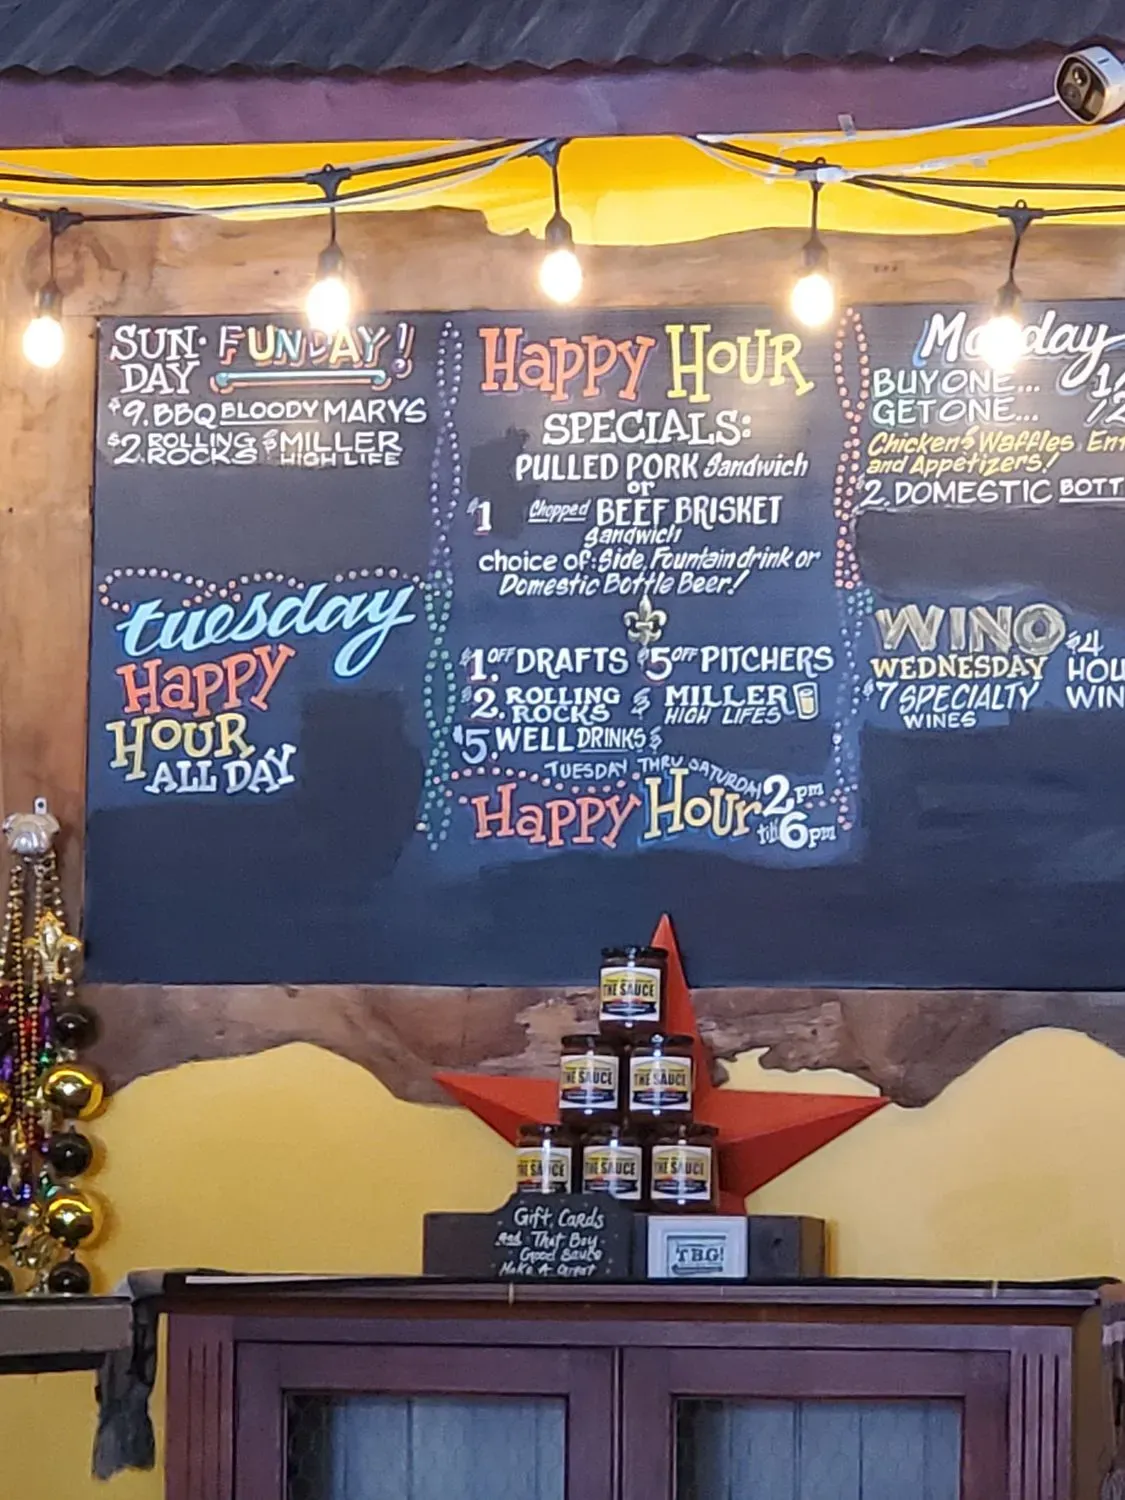 SUN- FUNDAY!
DAY
$9. BBQ BLOODY MARYS
$2. ROLLING ROCKS & MILLER HIGH LIFE
tuesday
Happy
HOUR
ALL DAY
Happy HOUR
SPECIALS:
PULLED PORK Sandwich
or
$1 Chopped BEEF BRISKET
Sandwich
choice of: Side, Fountain drink or
Domestic Bottle Beer!
$1. OFF DRAFTS $5 OFF PITCHERS
$2. ROLLING ROCKS & MILLER HIGH LIFES
$5. WELL DRINKS &
TUESDAY THRU SATURDAY
Happy Hour 2pm
till 6pm
Monday
BUY ONE... 1/2
GET ONE...
Chicken & Waffles, Ent
and Appetizers!
$2. DOMESTIC BOTT
WINO
WEDNESDAY
$7 SPECIALTY
WINES
$4
HOU
WIN
THE SAUCE
THE SAUCE
THE SAUCE
THE SAUCE
THE SAUCE
THE SAUCE
Gift Cards
And That Boy
Good Sauce
Make A Great
TBG!